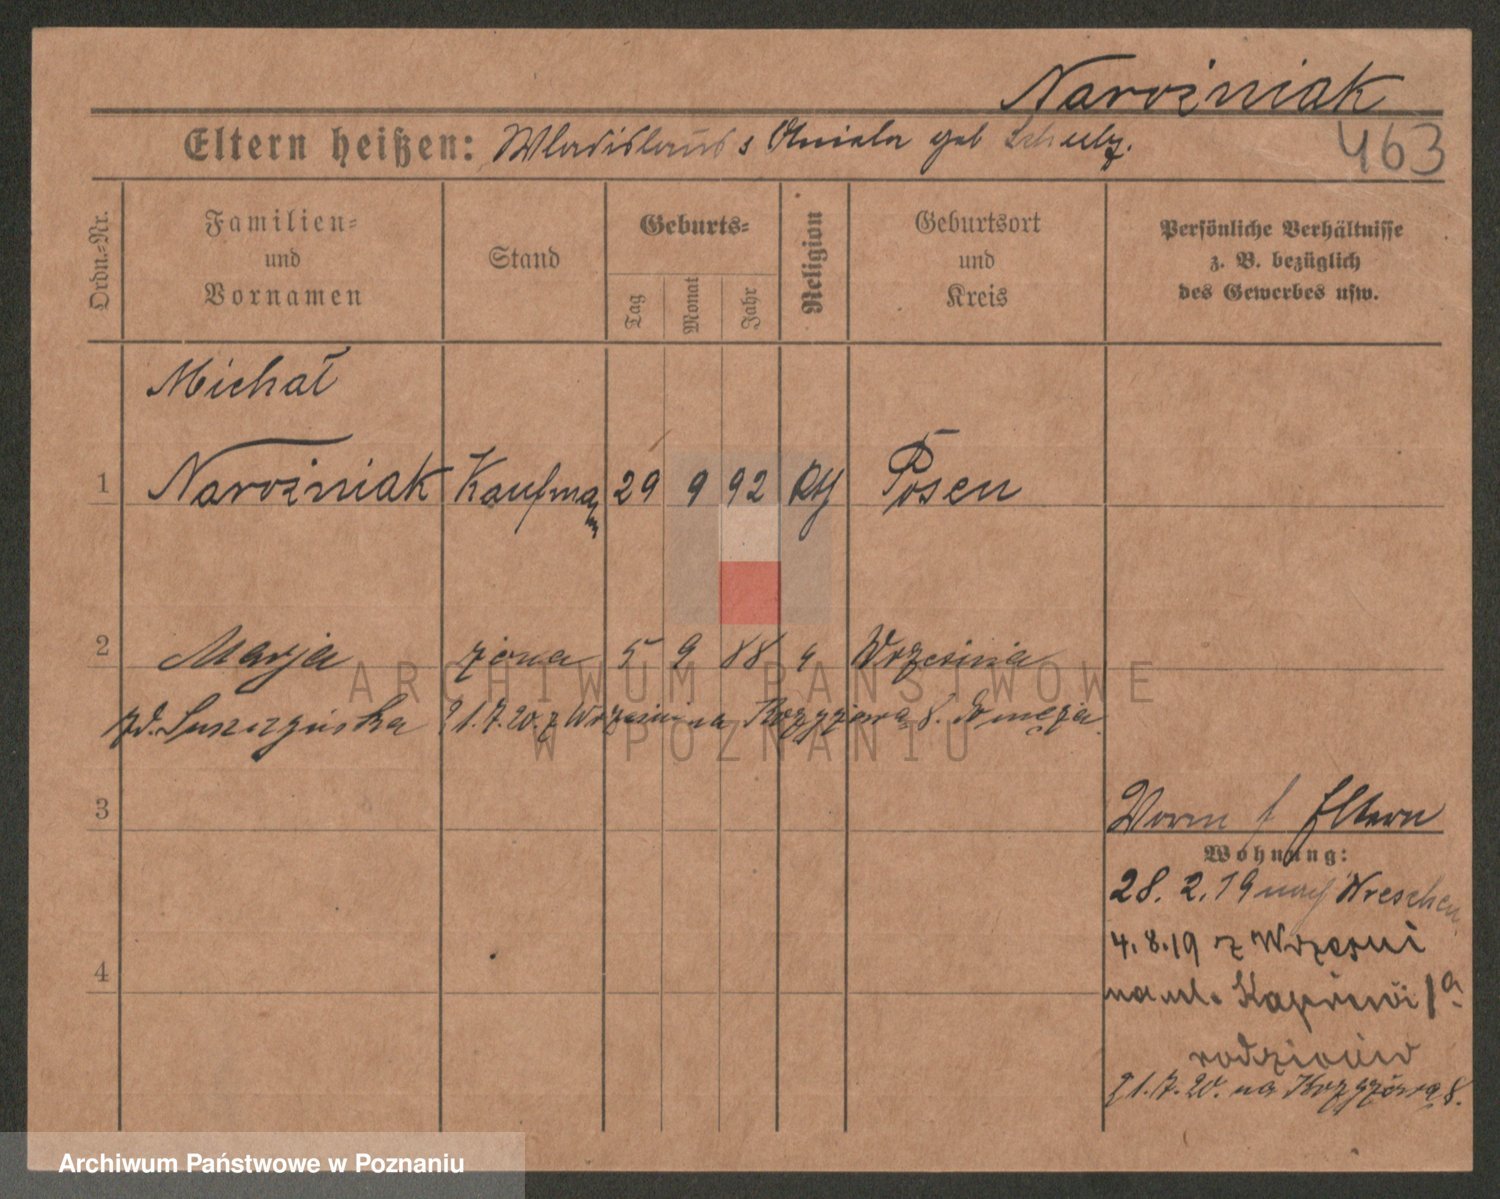 Narożniak
463
Eltern heißen: Wladislaus s Aniela geb Schulz.
Ordn.-Nr.
Familien- und Vornamen
Stand
Geburts-
Tag
Monat
Jahr
Religion
Geburtsort und Kreis
Persönliche Verhältnisse
z. B. bezüglich
des Gewerbes usw.
Michał
1 Narożniak Kaufmann 29 9 92 Posen
2 Marja żona 5 9 88 Września
21.7.20. z Wrześni na
3
Eltern
Wohnung:
28. 2. 19 nach Wreschen
4.8.19 z Wrześni
na ul.
rodziców
21.7.20. na
4
ARCHIWUM PAŃSTWOWE
W POZNANIU
Archiwum Państwowe w Poznaniu